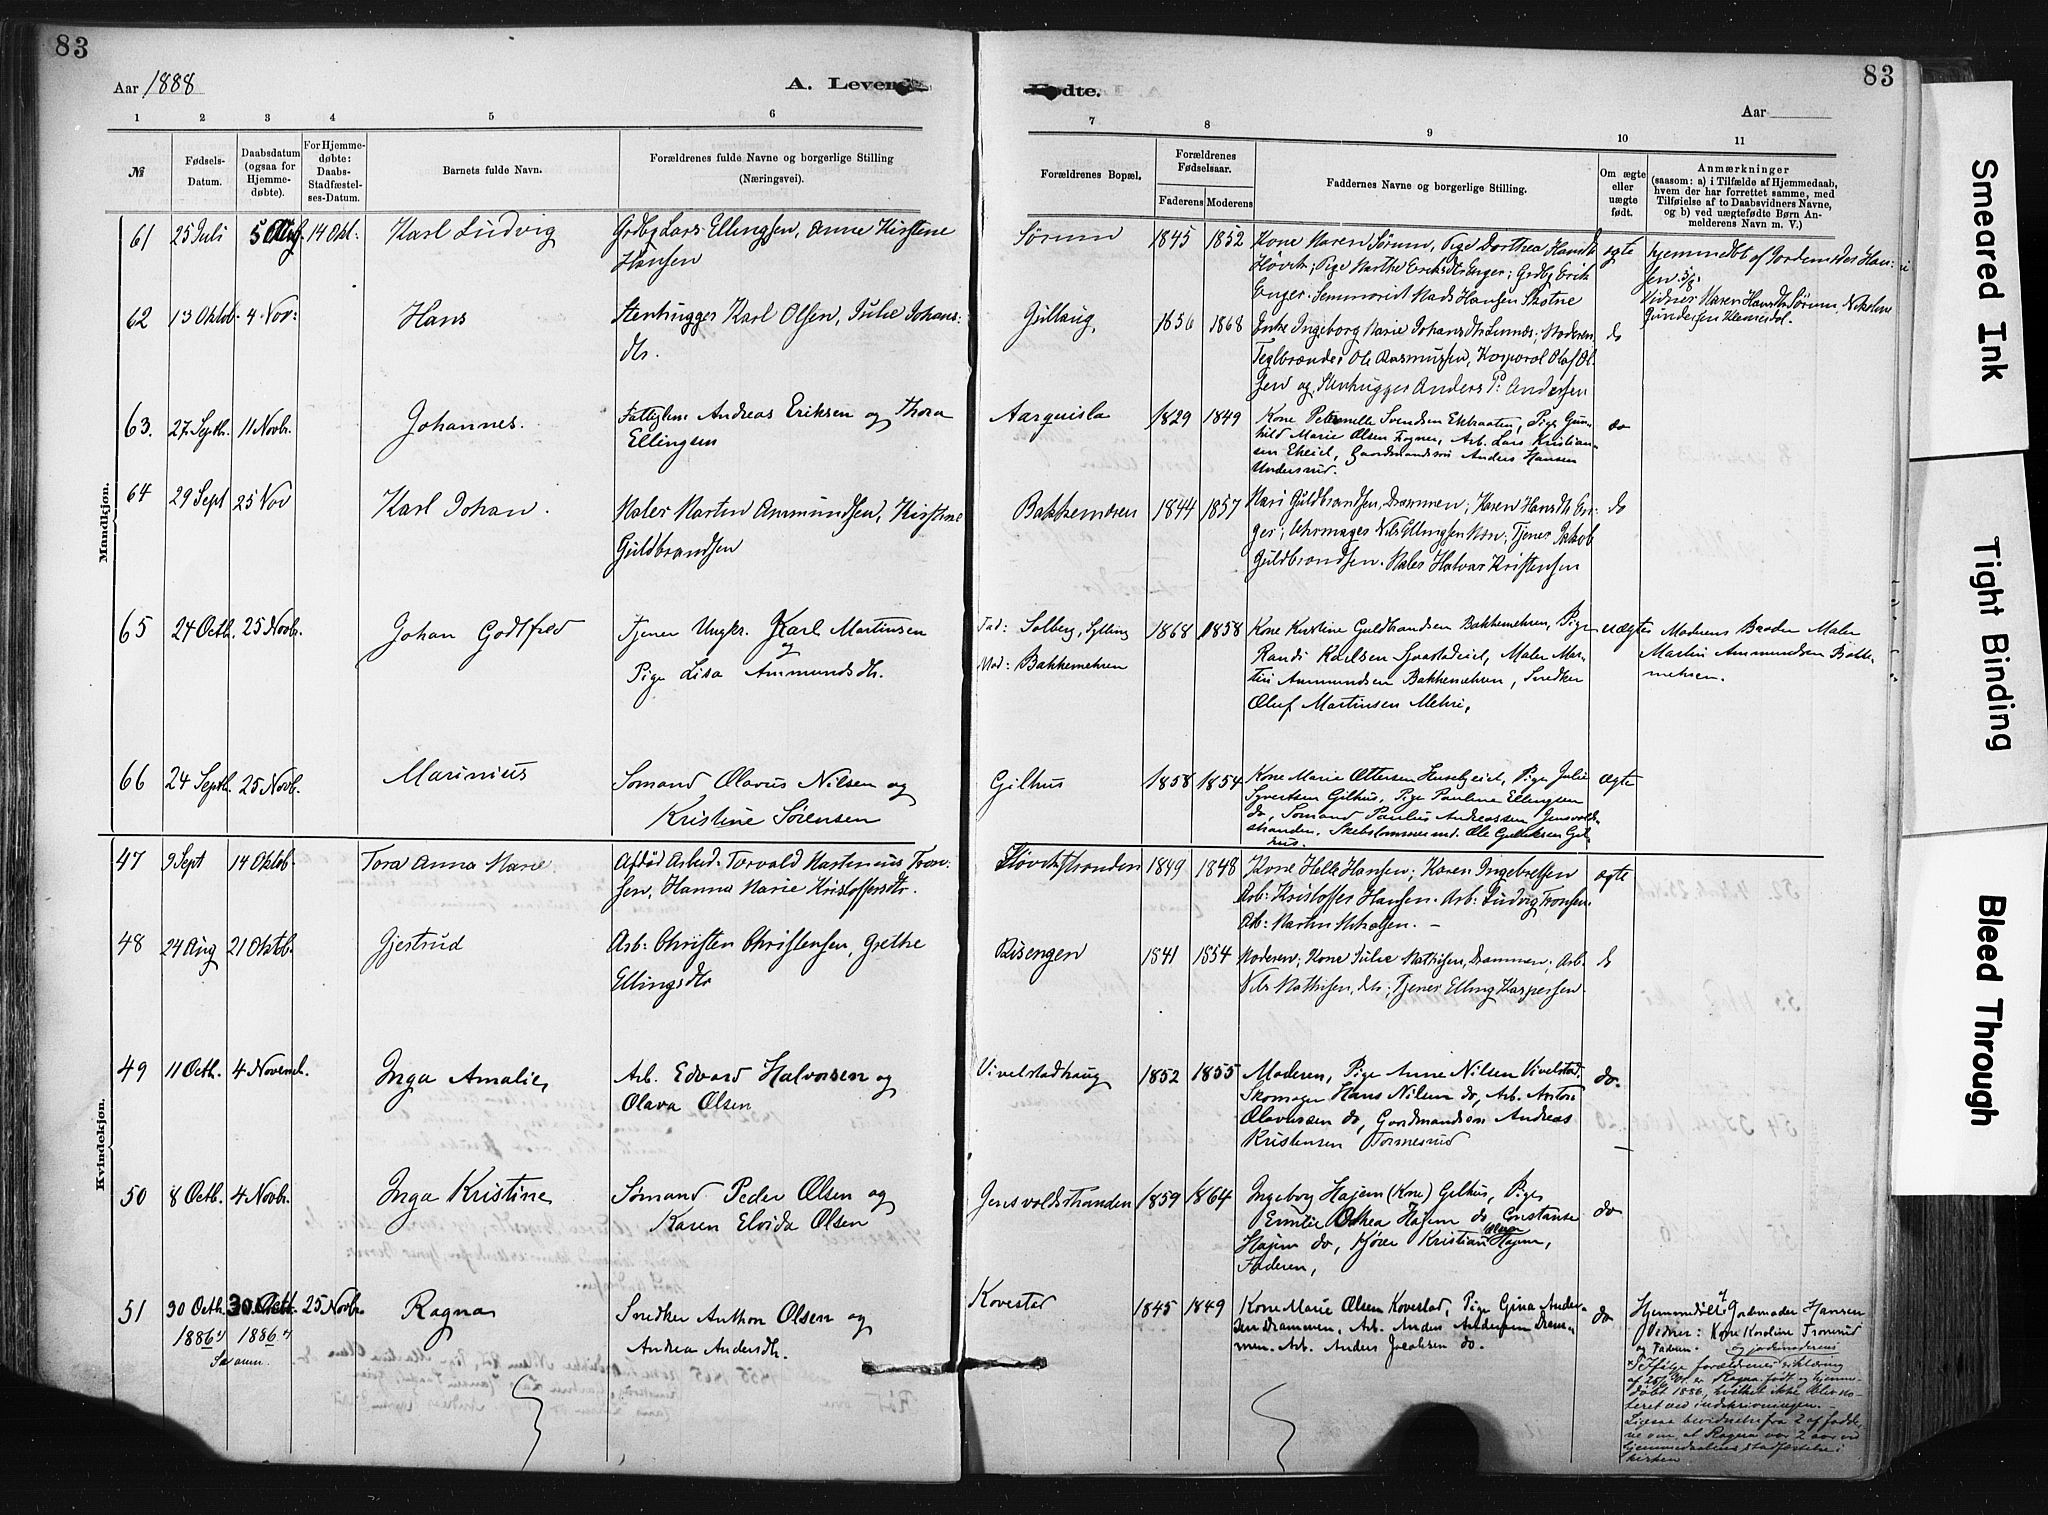 83
83
Aar 1888
A. Levende
Fødte.
Aar
1 2 3 4 5 6 7 8 9 10 11
№
Fødsels-
Datum.
Daabsdatum
(ogsaa for
Hjemme-
døbte).
For Hjemme-
døbte:
Daabs-
Stadfæstel-
ses-Datum.
Barnets fulde Navn.
Forældrenes fulde Navne og borgerlige Stilling
(Næringsvei).
Forældrenes Bopæl.
Forældrenes
Fødselsaar.
Faderens Moderens
Faddernes Navne og borgerlige Stilling.
Om ægte
eller
uægte
født.
Anmærkninger
(saasom: a) i Tilfælde af Hjemmedaab,
hvem der har forrettet samme, med
Tilføielse af to Daabsvidners Navne,
og b) ved uægtefødte Børn An-
melderens Navn m. V.)
Mandkjøn.
61 25 Juli 14 Okt. Karl Ludvig Grdbr Lars Ellingsen, Anne Kirstine
Hansen
Sørum 1845 1852 Kone Maren Sørum, Pige Dorthea Hansdtr
Høvik; Pige Marthe Eriksdtr Enger; Grdbr Erik
Enger. Seminarist Mads Hansen Skotne
ægte
Hjemmedbt af Jordemoder Han-
sen 5/8.
Vidner Maren Hansdtr Sørum, Nikoline
Gundersen
62 13 Oktob. 4 Nov: Hans Stenhugger Karl Olsen, Julie Johans-
dtr.
Gullaug 1856 1868 Enke Ingeborg Marie Johansdtr Linnæs; Moderen
Teglbrænder Ole Rasmussen, Korporal Olaf Ol-
sen og Stenhugger Anders P. Andersen
do
63. 27. Septb. 11 Novbr. Johannes. Fattiglem Andreas Eriksen og Thora
Ellingsen
Aarquisla 1829 1849 Kone Petronelle Svendsen Ekbraaten, Pige Gun-
hild Marie Olsen Fogner, Arb. Lars Kristian-
sen Ekeid, Gaardmandssøn Anders Hansen
Undersrud.
do
64 29 Sept 25 Nov Karl Johan. Maler Martin Ammundsen, Kirstine
Guldbrandsen
Bakkemæren 1844 1857 Mari Guldbrandsen, Drammen; Karen Hansdtr En-
ger; Uhrmager Nils Ellingsen Moen; Tjener Jakob
Guldbrandsen. Maler Halvor Kristensen
do
65 24 Octb. 25 Novbr. Johan Godtfred Tjener Ungkr. Karl Martinsen
og
Pige Lisa Ammundsdtr.
Fad: Solberg, Sylling
Mod: Bakkemehren
1868 1858 Kone Kristine Guldbrandsen Bakkemehren, Pige
Randi Karlsen Svartadeiet, Maler Mar-
tin Ammundsen Bakkemehren, Snedker
Oluf Martinsen Mehren,
uægte Moderens Broder Maler
Martin Ammundsen Bakke-
mehren.
66 24 Septb. 25 Novb. Marinius Sømand Olavus Nilsen og
Kristine Sørensen
Gilhus 1858 1854 Kone Marie Ottersen Husebyeiet, Pige Julie
Syvertsen Gilhus, Pige Pauline Ellingsen
do, Sømand Paulus Andreassen Jensvold-
stranden, Skibstømmermd. Ole Gulliksen Gil-
hus.
ægte
Kvindekjøn.
47 9 Sept 14 Oktob. Tora Anna Marie Afdød Arbeid: Torvald Martinius Tron-
sen, Hanna Marie Kristoffersdtr.
Høvikstranden 1849 1848 Kone Helle Hansen; Karen Ingebretsen
Arb: Kristoffer Hansen. Arb: Ludvig Tronsen.
Arb: Martin Mikalsen. —
ægte
48 24 Aug 21 Oktb. Gjertrud Arb: Christen Christensen, Grethe
Ellingsdtr
Risengen 1841 1854 Moderen; Kone Julie Mathisen, Drammen; Arb.
Nils Mathisen, do; Tjener Elling Kaspersen.
do
49 11 Octb. 4 Novemb. Inga Amalie, Arb. Edvard Halvorsen og
Olava Olsen
Vivelstadhaug 1852 1855 Moderen, Pige Anne Nilsen Vivelstad,
Skomager Hans Nilsen do, Arb. Anton
Olavessen do, Gaardmandssøn Andreas
Kristensen Tormesrud
do.
50 8 Octb. 4 Novbr. Inga Kristine Sømand Peder Olsen og
Karen Elvida Olsen
Jensvoldstranden 1859 1864 Ingeborg Hajem (Kone) Gilhus, Pige
Emilie Othea Hajem do, Constanse
Hajem do, Kjører Kristian Hajem,
Faderen,
do
51 30 Octb. 30 Octb. 25 Novbr. Ragna Snedker Anthon Olsen og
1886 1886
Andrea Andersdtr.
Kovestad 1845 1849 Kone Marie Olsen Kovestad, Pige Gina Ander-
sen Drammen, Arb. Anders Andersen Dram-
men. Arb. Anders Jacobsen do.
do
Hjemmedøbt af Jordemoder Hansen
Vidner: Kone Karoline Tronsrud
og Faderen. og jordmoderens
Ifølge forældrenes erklæring
af er Ragna født og hjemme-
døbt 1886, hvilket ikke blev no-
teret ved indskrivningen. —
Ligesaa bevidnelse fra 2 af fadde-
rne om, at Ragna var 2 aar ved
hjemmedaabens stadfæstelse i
kirken
Smeared Ink
Tight Binding
Bleed Through